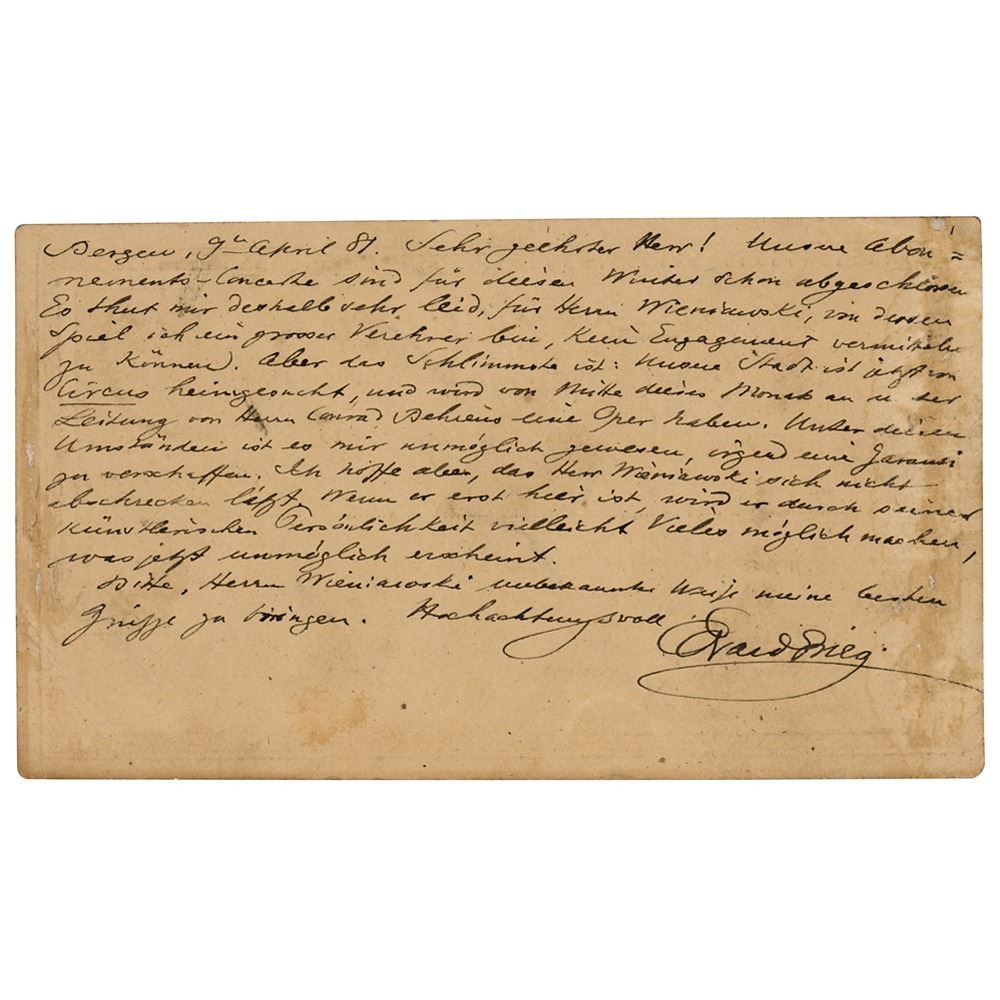 Bergen, 9ten April 81. Sehr geehrter Herr! Unsere Abon=
nements-Concerte sind für diesen Winter schon abgeschlossen
Es thut mir deshalb sehr leid, für Herrn Wieniawski, von dessen
Spiel ich ein grosser Verehrer bin, kein Engagement vermitteln
zu können. Aber das Schlimmste ist: Unsere Stadt ist jetzt von
Circus heimgesucht, und wird von Mitte dieses Monats an u. der
Leitung von Herrn Conrad Behrens eine Oper haben. Unter diesen
Umständen ist es mir unmöglich gewesen, irgend eine Garanti
zu verschaffen. Ich hoffe aber, das Herr Wieniawski sich nicht
abschrecken läßt. Wenn er erst hier ist, wird er durch seine
künstlerische Persönlichkeit vielleicht Vieles möglich machen,
was jetzt unmöglich erscheint.
Bitte, Herrn Wieniawski unbekannter Weise meine besten
Grüsse zu bringen. Hochachtungsvoll
Edvard Grieg.